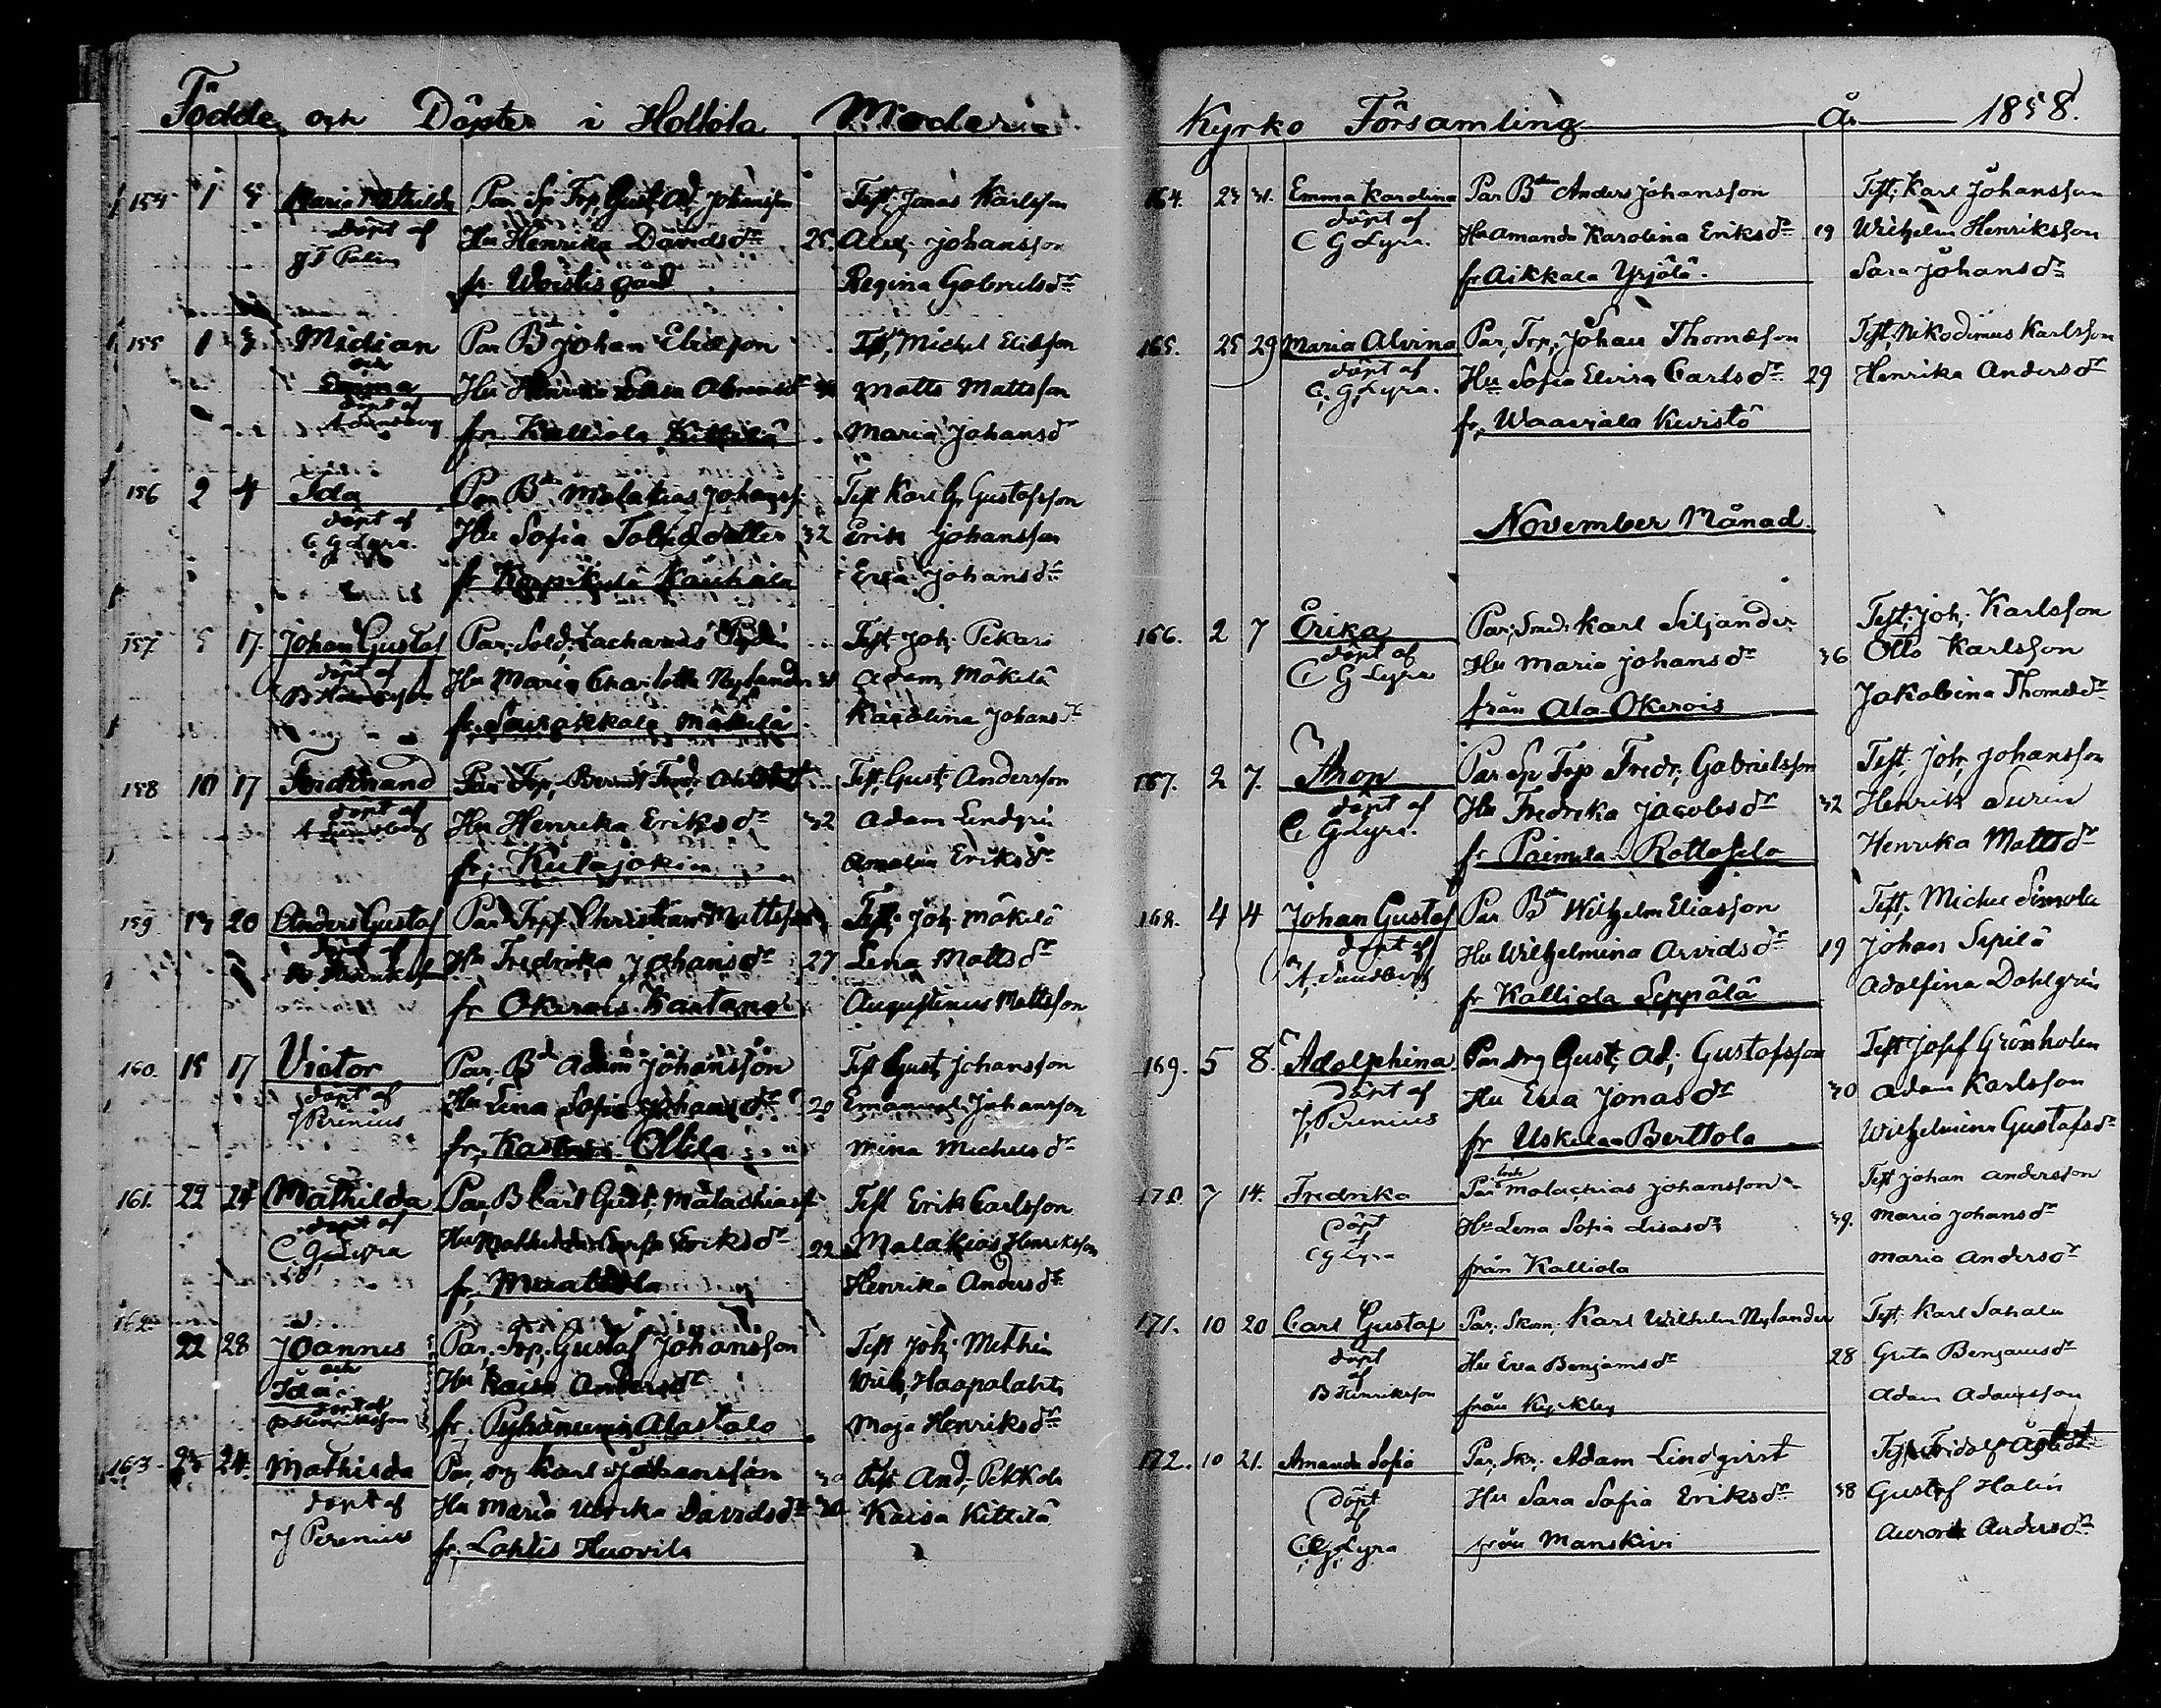 Födde och Döpte i Hollola Moder
154 1 3 Maria Mathilda Par. Sp. Trp. Gust. Ad. Johansson Test; Jonas Karlsson
döpt af Hu Henrika Davidsdr 25. Alex. Johansson
J F Palin fr. Woistis gård Regina Gabrielsdr
155 1 3 Midian Par Bd Johan Eliasson Test, Michel Eliasson
och
Emma Hu Henrika Abramsdr Matts Mattsson
döpt af
fr. Kalliola Kittilä Maria Johansdr
156 2 4 Ida Par Bdn Malakias Johanss. Test Karl G. Gustafsson
döpt af Hu Sofia Tobiædotter 32 Erik Johansson
C G Lyra.
fr Korpikylä Kauhala Eva Johansdr
157 5 17. Johan Gustaf Par; Sold; Zacharias Test Joh; Pekari
döpt af Hu Maria Charlotta Nylander 31 Adam Mäkelä
B Henriksson
fr. Mäkelä Karolina Johansdr
158 10 17 Ferdinand Par Trp; Bernt Fred; Test, Gust; Andersson
döpt af Hu Henrika Eriksdr 32 Adam Lindgrén
fr; Kutajoki Amalia Eriksdr
159 13 20 Anders Gustaf Par Trp; Christian Mattsson Test; Joh; Mäkelä
döpt af
B. Henriksson Hu Fredrika Johansdr 27 Lena Mattsdr
fr Okerois Kartano Augustinus Mattsson
160. 15 17 Victor Par; Bd Adam Johansson Test Gust; Johansson
döpt af Hu Lina Sofia Johansdr 20 Emanuel Johansson
J Perenius
fr; Ollila Mina Michelsdr
161. 22 24 Mathilda Par, B Carl Gust; Malachiass. Test Erik Carlsson
döpt af Hu Eriksdr 22 Malakias Henriksson
C G Lyra
fr; Henrika Andersdr
162.
22 28 Joannes Par. Trp; Gustaf Johansson Test Joh; Methén
och
Ida. Hu Kaisa Andersdr Haapalahti
döpt af
B Henriksson fr; Pyhäniemi Alastalo Maja Henriksdr
163. 23 24. Mathilda Par, Karl Johansson 30 Test And; Pekkola
döpt af Hu Maria Ulrika Davidsdr Kaisa Kittilä
J Perenius fr; Lahtis Huovila
Kyrko Församling År 1858.
164. 23 31. Emma Karolina Par Bdn Anders Johansson Test; Karl Johansson
döpt af Hu Amanda Karolina Eriksdr 19 Wilhelm Henriksson
C G Lyra.
fr Aikkala Yrjölä. Sara Johansdr
165. 25 29 Maria Alvina Par, Trp, Johan Thomæson Test, Nikodimus Karlsson
döpt af Hu Sofia Elvira Carlsdr 29 Henrika Andersdr
C. G. Lyra.
fr, Waaviala Kuristo
November Månad.
166. 2 7 Erika Par; Smed Karl Siljander Test; Joh; Karlsson
döpt af Hu Maria Johansdr 36 Otto Karlsson
C G Lyra
från Ala Okerois Jakobina Thomædr
167. 2 7. Aron Par Sp Trp Fredr; Gabrielsson Test; Joh, Johansson
döpt af Hu Fredrika Jacobsdr 32 Henrik Surin
C G Lyra.
fr Paimela Henrika Mattsdr
168. 4 4 Johan Gustaf Par Bdn Wilhelm Eliasson Test. Michel Simola
döpt af Hu Wilhelmina Arvidsdr 19 Johan Sepilä
fr Kalliola Seppälä Adolfina Dahlgrén
169. 5 8. Adolphina Par drg Gust; Ad; Gustafsson Test Josef Grönholm
döpt af Hu Eva Jonasdr 30 Adam Karlsson
J; Perenius fr Uskila Berttola Wilhelmina Gustafsdr
170. 7 14. Fredrika Par Malachias Johansson Test Johan Andersson
döpt
af Hu Lena Sofia Lisasdr 39. Maria Johansdr
C G Lyra från Kalliola Maria Andersdr
171. 10 20 Carl Gustaf Par; Skom; Karl Wilhelm Nylander Test. Karl Sahala
döpt
af Hu Eva Benjamsdr 28 Greta Benjamsdr
B Henriksson från Adam Adamsson
172. 10 21. Amanda Sofia Par, Skr; Adam Lindqvist Test
döpt
af Hu Sara Sofia Eriksdr 38 Gustaf Halin
C G Lyra från Manskivi Aurora Andersdr